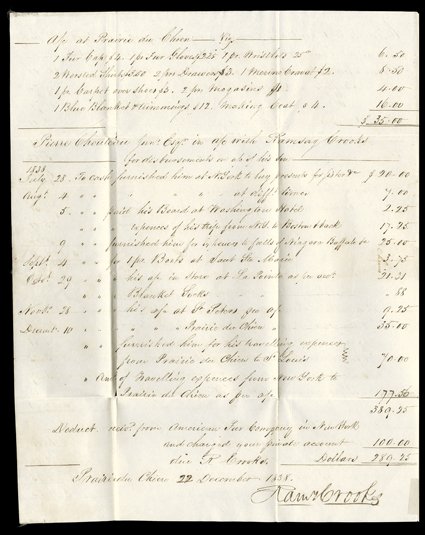 a/c at Prairie du Chien Viz
1 Fur Cap $4. 1 pr Fur Gloves 2.25 1 pr Wristlets 25 6.50
2 Worsted Shirts 3.50 2 pr Drawers $3. 1 Cravat $2. 8.50
1 pr Carpet over shoes $3. 2 pr Magasins $1. 4.00
1 Blue Blanket & trimmings $12. Making Coat $4. 16.00
$ 35.00
Pierre Chouteau Junr Esqr in a/c with Ramsay Crooks
for disbursements on a/c of his son
1838
28 To cash furnished him at to buy presents for $ 20.00
Augt 4 " " " " at difft times 7.00
5 " paid his Board at Washington Hotel 2.25
" " expences of his trip from N.Y. to Boston & back 17.25
9 " furnished him for expences to falls of Niagara Buffalo &c 25.00
Septr 4 " for 1 pr Boots at Saut Ste Marie 3.75
Octr 29 " his a/c in Store at La Pointe as pr 21.31
" " Blanket Socks " .88
Novr 28 " his a/c at St Peters per a/c 9.25
Decemr 10 " " " " Prairie du Chien " 35.00
" furnished him for his travelling expences
from Prairie du Chien to St Louis 70.00
" Amt of Travelling expences from New York to
Prairie du Chien as per a/c 177.56
389.25
Deduct from American Fur Company in New York
and charged your private account 100.00
due R. Crooks. Dollars 289.25
Prairie du Chien 22 December 1838.
Ramsay Crooks